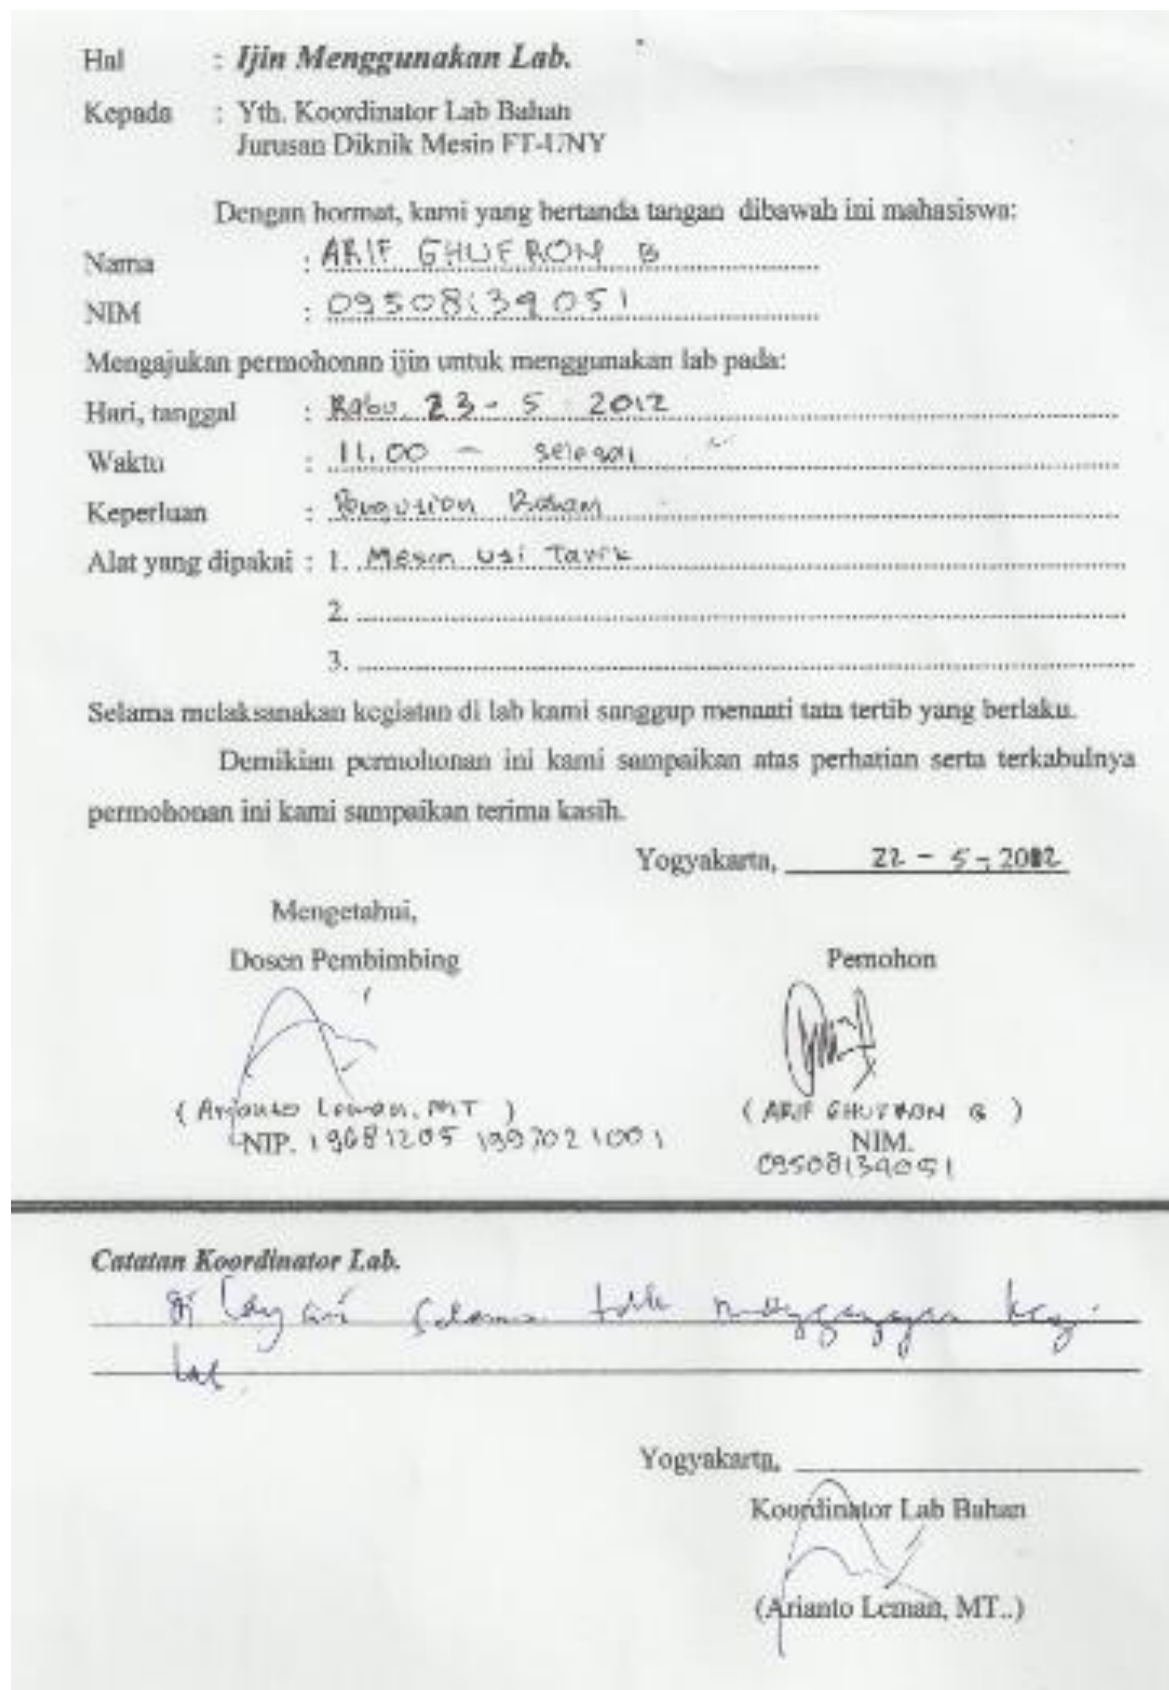 Hal : Ijin Menggunakan Lab.
Kepada : Yth. Koordinator Lab Bahan
Jurusan Diknik Mesin FT-UNY
Dengan hormat, kami yang bertanda tangan dibawah ini mahasiswa:
Nama : ARIF GHUFRON B
NIM : 09508134051
Mengajukan permohonan ijin untuk menggunakan lab pada:
Hari, tanggal : Rabu, 23 - 5 - 2012
Waktu : 11.00 - selesai
Keperluan : Pengujian Bahan
Alat yang dipakai : 1. Mesin Uji Tarik
2.
3.
Selama melaksanakan kegiatan di lab kami sanggup menaati tata tertib yang berlaku.
Demikian permohonan ini kami sampaikan atas perhatian serta terkabulnya
permohonan ini kami sampaikan terima kasih.
Yogyakarta, 22 - 5 - 2012
Mengetahui,
Dosen Pembimbing Pemohon
(Arianto Leman, MT) (ARIF GHUFRON B)
NIP. 19681205 199702 1001 NIM.
09508134051
Catatan Koordinator Lab.
di layani selama tdk mengganggu keg.
lab.
Yogyakarta,
Koordinator Lab Bahan
(Arianto Leman, MT..)